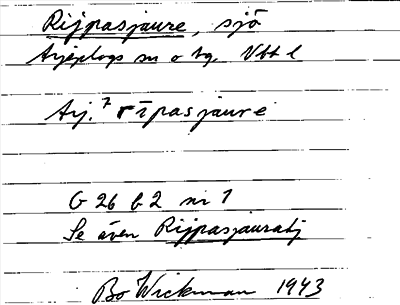 Rijpasjaure, sjö
Arjeplogs sn o tg. Vbtt l
Arj. rīpasjaure
G 26 b 2 nr 1
Se även Rijpasjauratj
Bo Wickman 1943